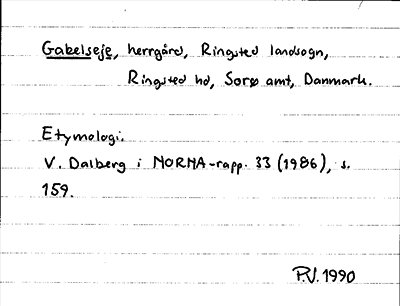 Gabelseje, herrgård, Ringsted landsogn,
Ringsted hd, Sorø amt, Danmark.
Etymologi.
V. Dalberg i NORNA-rapp. 33 (1986), s.
159.
P.V. 1990